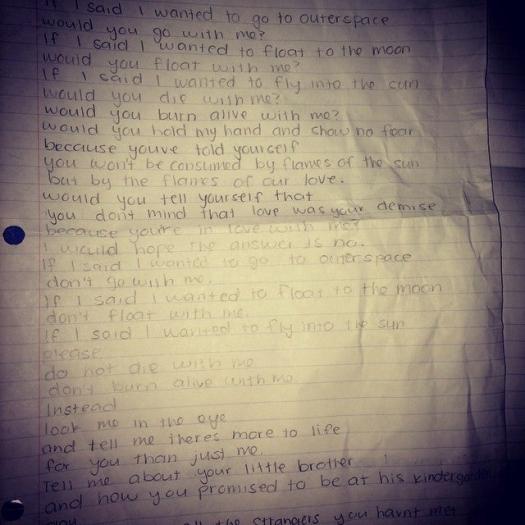 If I said I wanted to go to outerspace
would you go with me?
If I said I wanted to float to the moon
would you float with me?
If I said I wanted to fly into the sun
would you die with me?
would you burn alive with me?
would you hold my hand and show no fear
because youve told yourself
you won't be consumed by flames of the sun
but by the flames of our love.
would you tell yourself that
you don't mind that love was your demise
because you're in love with me?
I would hope the answer is no.
If I said I wanted to go to outerspace
don't go with me.
If I said I wanted to float to the moon
don't float with me.
If I said I wanted to fly into the sun
please
do not die with me
don't burn alive with me
Instead
look me in the eye
and tell me theres more to life
for you than just me.
Tell me about your little brother
and how you promised to be at his kindergarden
the strangers you havnt met